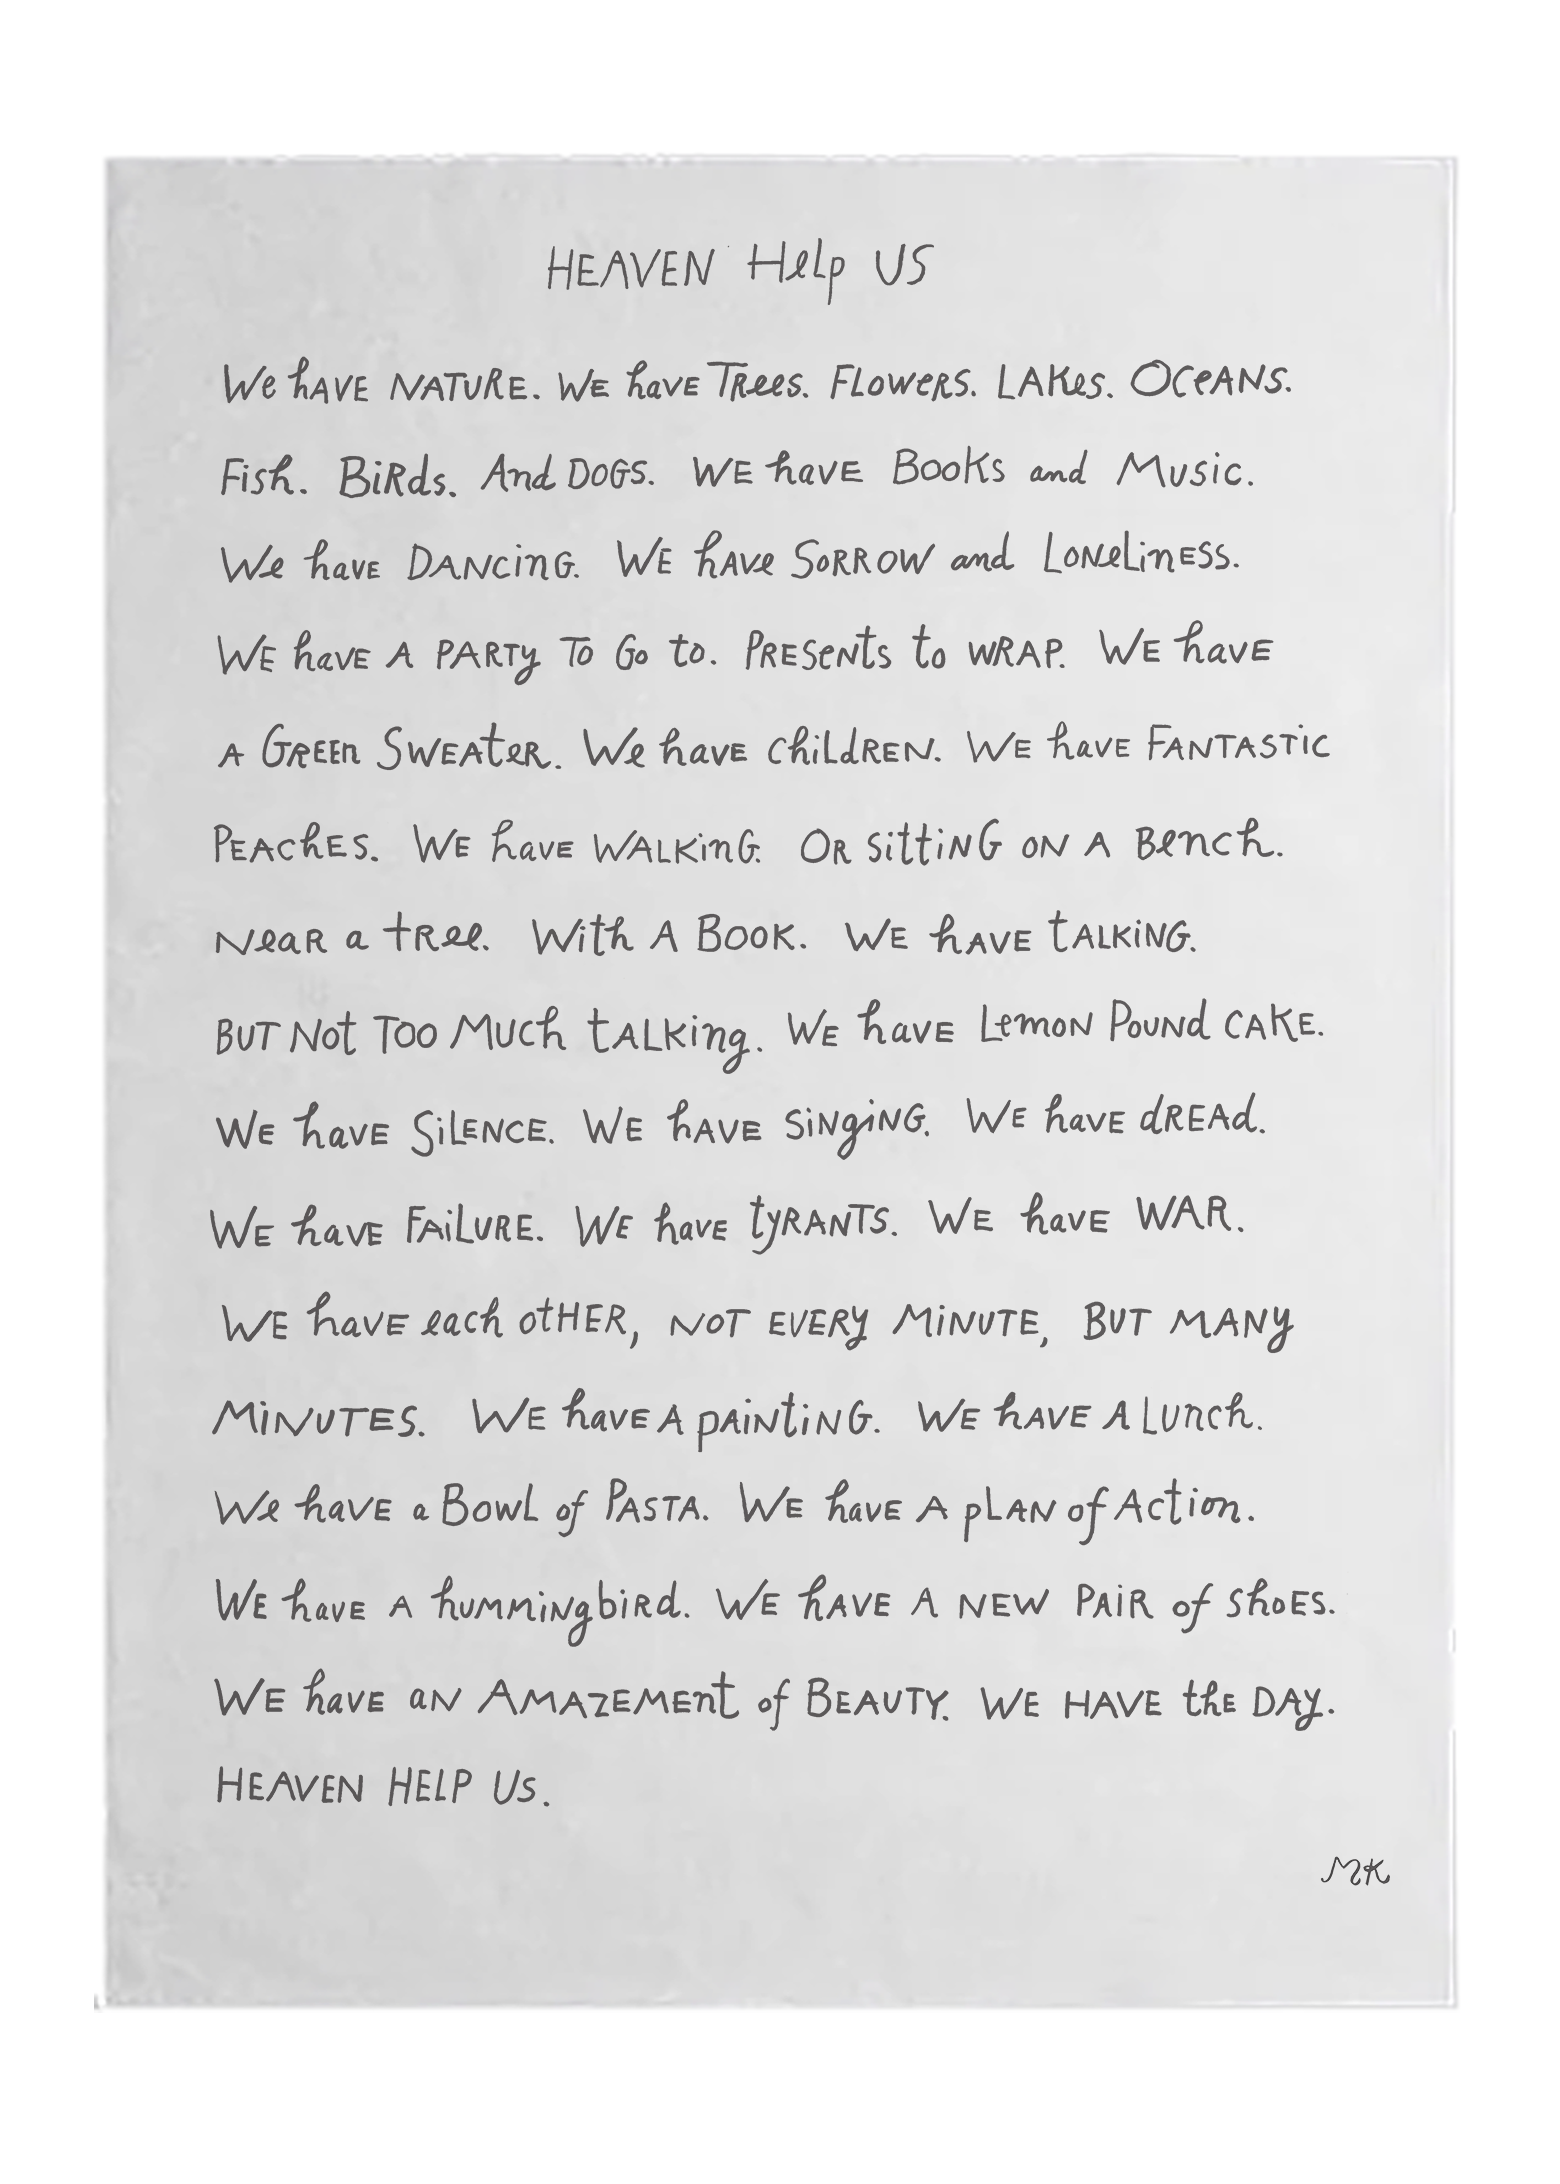 HEAVEN Help US
We hAVE NATURE. WE have TRees. FLOWERS. LAKes. OCeANS.
Fish. BiRds. And DOGS. WE haVE BOOKs and Music.
We havE DANCinG. WE hAVe SORROW and LONeLinESS.
WE haVE A PARTy TO Go to. PRESeNts to WRAP. WE havE
A GREEn SWEAteR. We havE childREN. WE havE FANTASTiC
PEAChES. WE havE WALKinG. OR sittiNG ON A Bench.
NeaR a tRee. With A BOOK. WE hAVE tALKiNG.
BUT Not TOO MUCh tALKing. WE havE LemoN POUNd CAKE.
WE haVE SiLENCE. WE hAVE SiNgiNG. WE havE dREAd.
WE havE FAiLURE. WE havE tyRANTS. WE havE WAR.
WE haVE each otHER, NOT EVERy MiNUTE, BUT MANy
MiNUTES. WE havE A pAiNtiNG. WE hAVE A LUnch.
We haVE a BOWL of PASTA. WE havE A pLAN of Action.
WE havE A huMMiNgbiRd. WE hAVE A NEW PAiR of shoES.
WE havE aN AMAZEMEnt of BEAUTY. WE HAVE thE DAy.
HEAVEN HELP Us.
MK